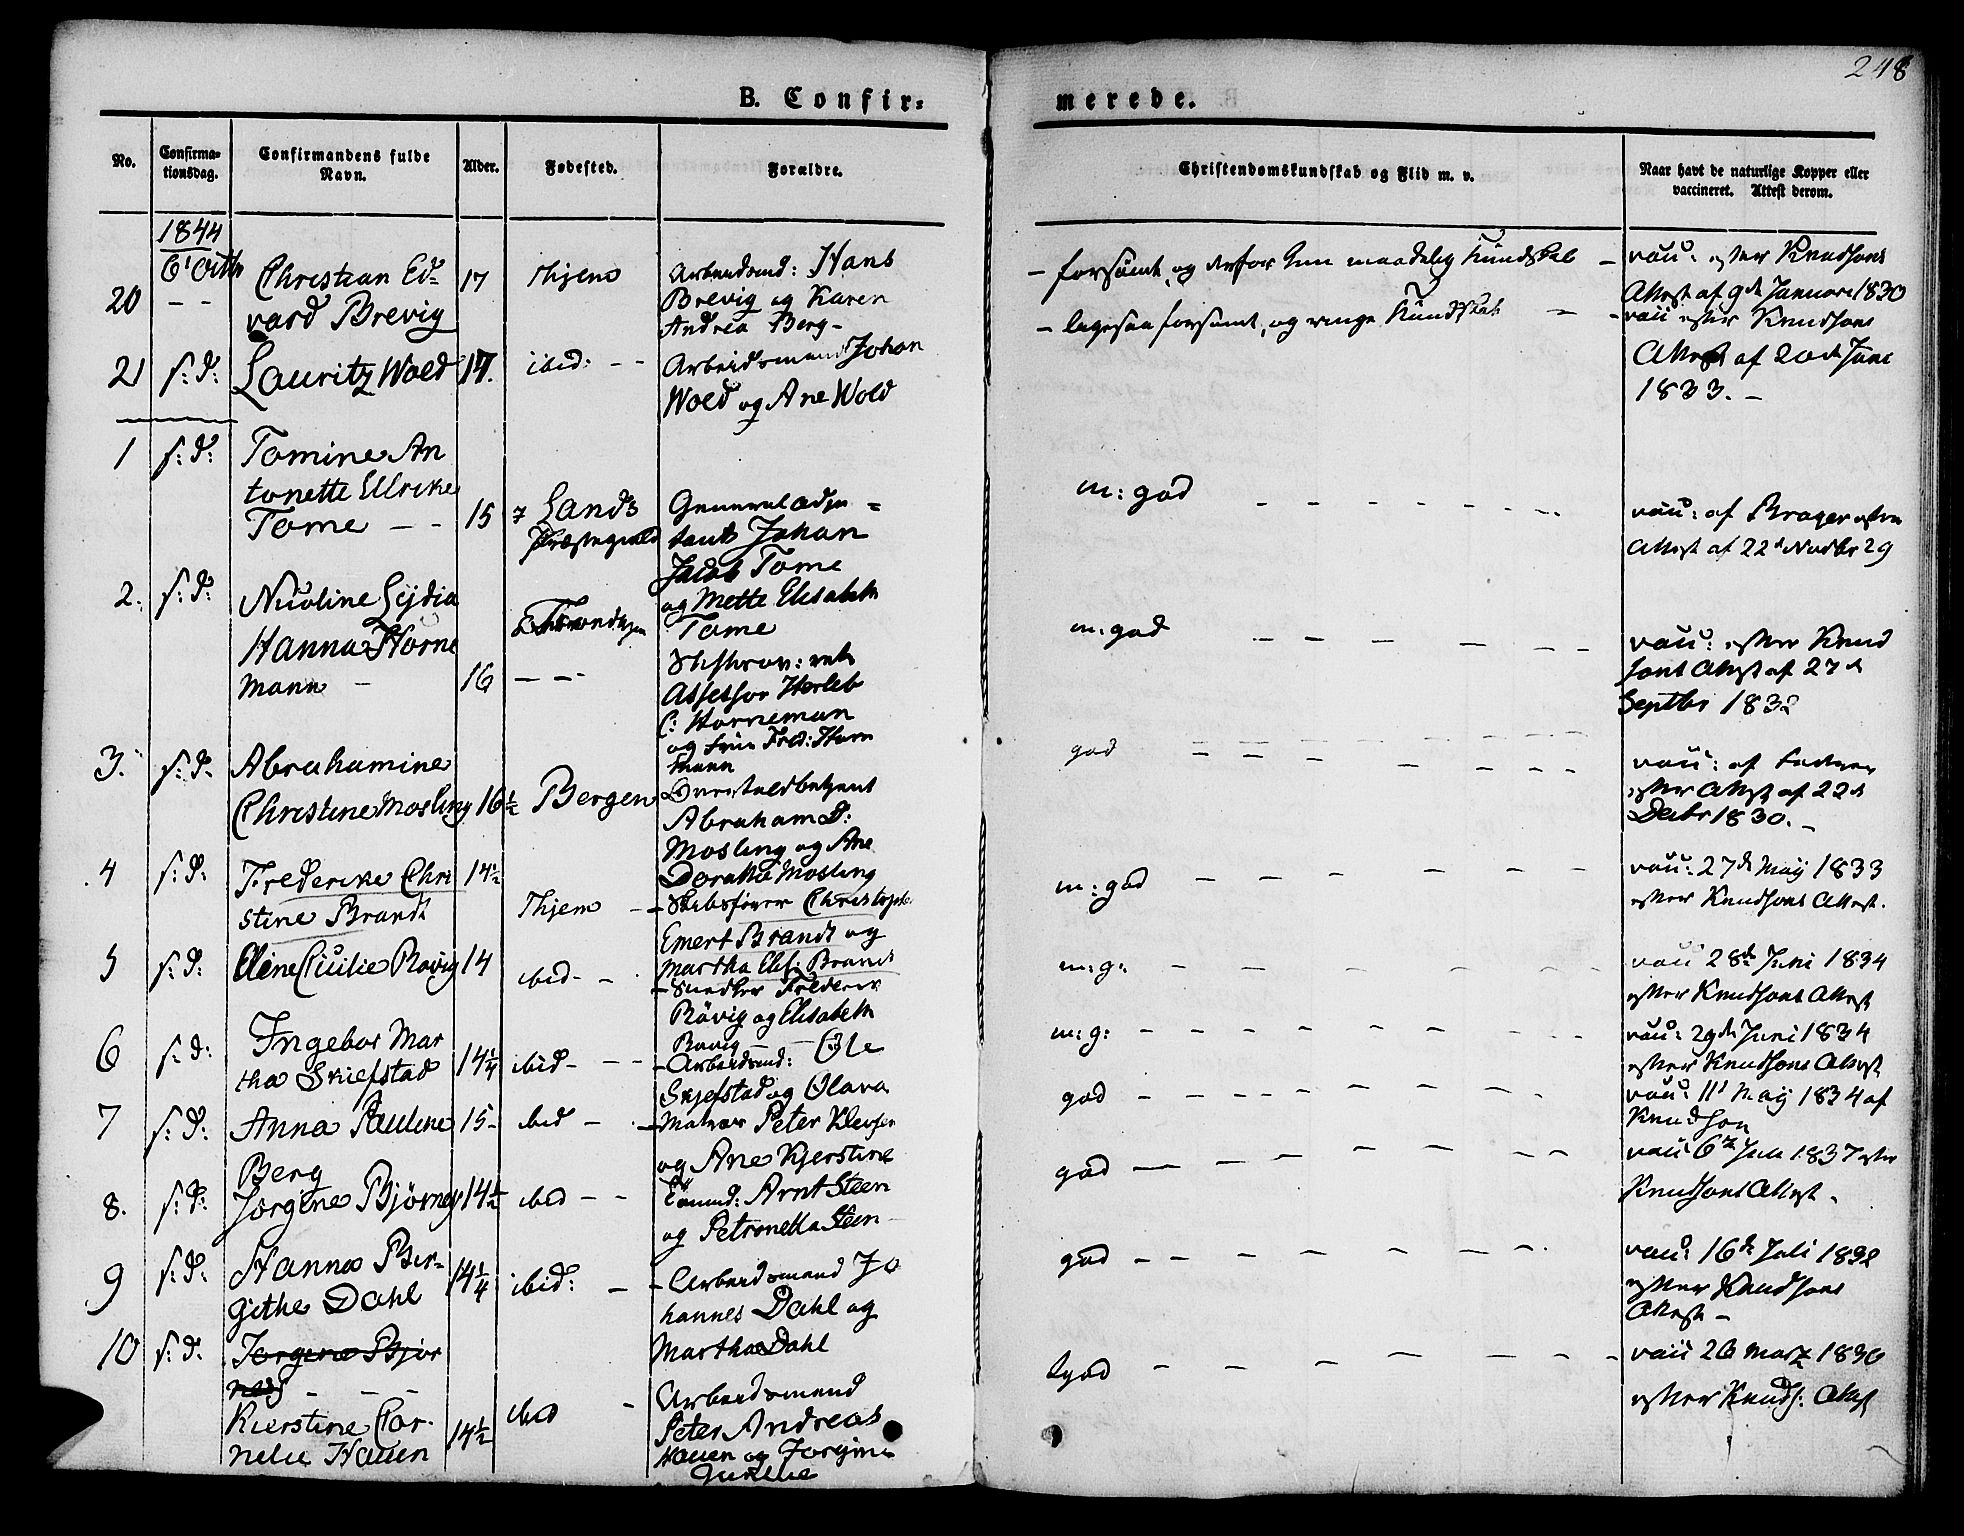 248
B. Confir=
merede.
No.
Confirma=
tionsdag.
Confirmandens fulde
Navn.
Alder.
Fødested.
Forældre.
Christendomskundskab og Flid m. v.
Naar havt de naturlige Kopper eller
vaccineret. Attest derom.
1844
6t Octbr
20 – – Christian Ed=
vard Brevig
17
Thjem
Arbeidsmd: Hans
Brevig og Karen
Andrea Berg –
– forsømt, og derfor kun maadelig Kundskab –
vacc: efter Knudsons
Attest af 9de Januar 1830
21 s: d: Lauritz Wold 17. ibid: – –
Arbeidsmand Johan
Wold og Ane Wold
– ligesaa forsømt, og ringe Kundskab –
vacc efter Knudsons
Attest af 20de Juni
1833. –
1 s: d: Tomine An
tonette Ulrike
Tome – – 15
Lands
Præstegield
General adju=
tant Johan
Jacob Tome
og Mette Elisabeth
Tome
m: god
vacc: af Brager efter
Attest af 22d Novbr 29
2. s: d: Nicoline Lydia
Hanna Horne
mann – 16
Trondhjem
– –
Assessor Herleb
C: Horneman
og Fred: Horn
mann
m: god
vacc: efter Knud
sons Attest af 27de
Septbr 1832
3. s: d. Abrahamine
Christine Mosling 16½ Bergen
Abraham D:
Mosling og Ane
Dorothea Mosling
god
vacc: af
efter Attest af 22de
Decbr 1830. –
4 s: d: Frederike Chri
stine Brandt
14½
Thjem –
– Skibsfører Christoph.
Emert Brandt og
Martha Elis: Brandt
m: god
vacc: 27de May 1833
efter Knudsons Attest.
5 s: d: Eline Cicilie Røvig 14 ibid – –
Frederik
Røvig og Elisabeth
Røvig – –
m: g:
vacc 28de Juni 1834
efter Knudsons Attest
6 s: d: Ingebor Mar
tha Skiefstad
14¼ ibid – – –
– Arbeidsmd: Ole
Skjefstad og Olava
m: g:
vacc: 29de Juni 1834
efter Knudsons Attest
7 s: d: Anna Pauline
Berg
15 – ibid – –
Peter
og Ane Kjerstine
god
vacc: 11t May 1834 af
Knudson
8. s: d: Jørgine Bjørney 14½ ibid – –
Arnt Steen
og Petronella Steen
god
vacc 6te 1837 efter
Knudsons Attest –
9 s: d: Hanna Bir=
githe Dahl
14¼ ibid: –
– Arbeidsmand Jo
hannes Dahl og
Martha Dahl
god
vacc: 16de Juli 1832
efter Knudsons
Attest –
10 s: d. Jørgine Bjør
ney – – –
Kierstine Cor=
nelie Hauen
14½
ibid –
Arbeidsmand
Peter Andreas
Hauen og Jørgine
tgod
vacc 26 Marz 1830
efter Knuds: Attest